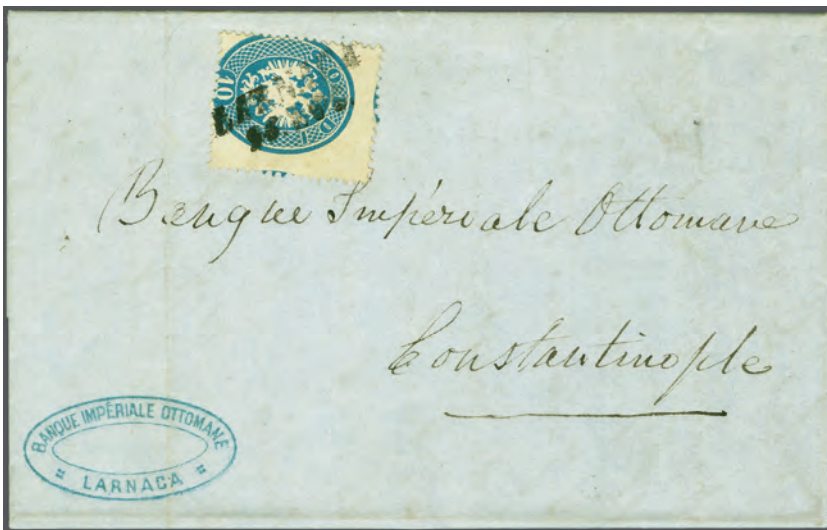 10 SOLDI
Banque Impériale Ottomane
Constantinople
BANQUE IMPÉRIALE OTTOMANE
LARNACA